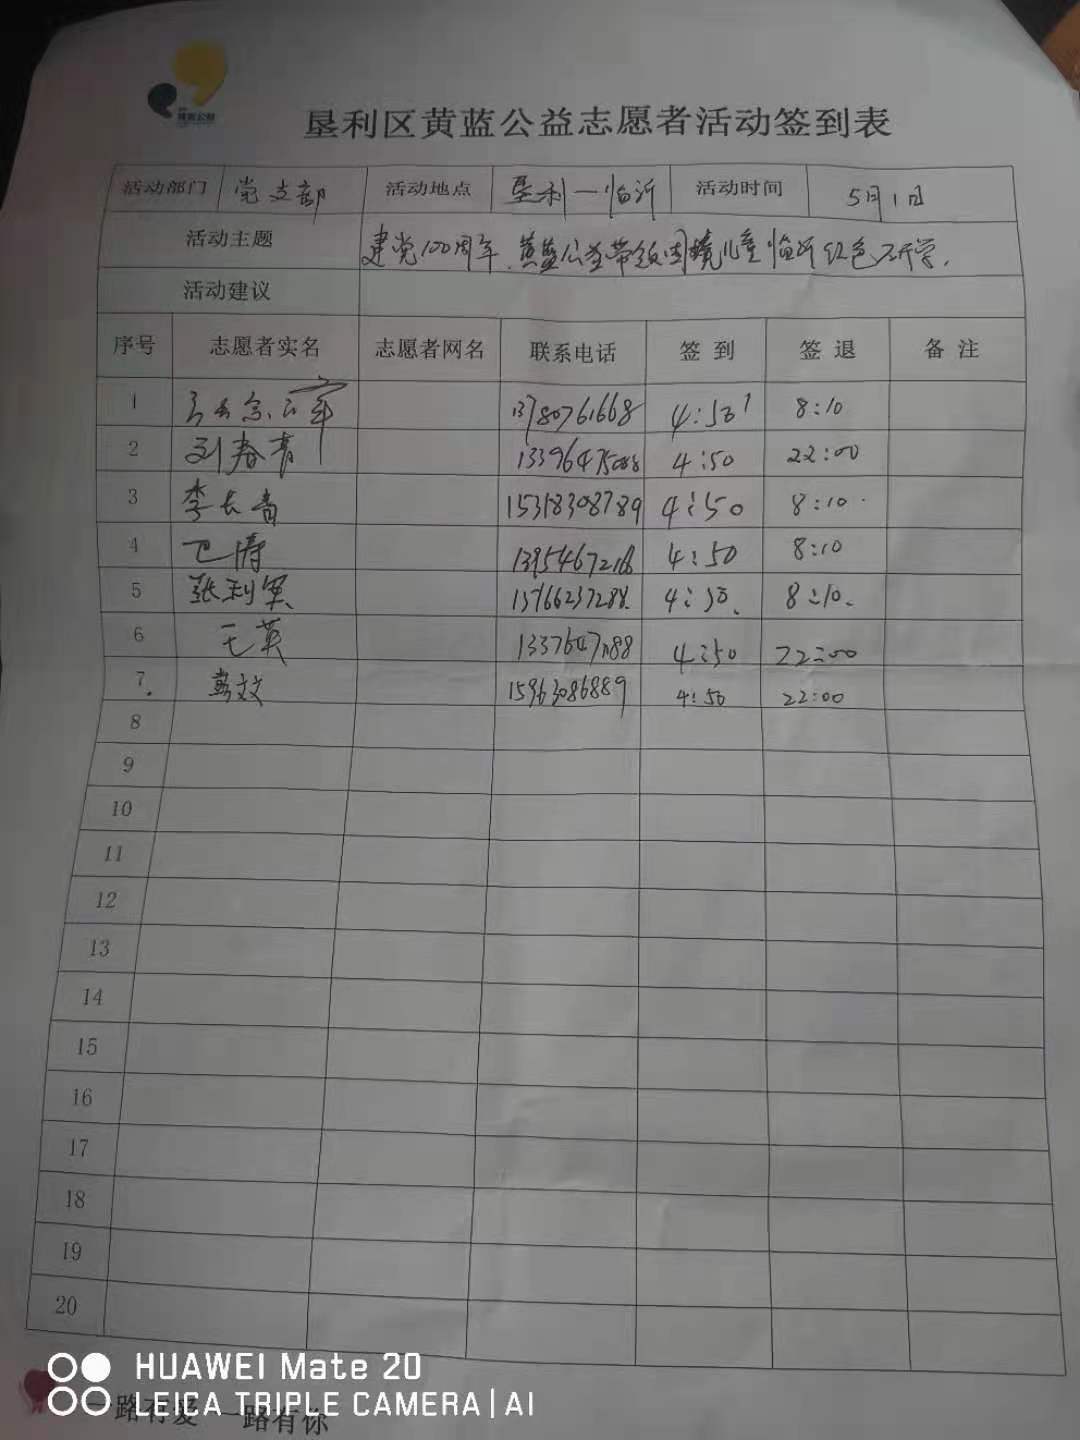 黄蓝公益
垦利区黄蓝公益志愿者活动签到表
活动部门 党支部 活动地点 垦利—临沂 活动时间 5月1日
活动主题 建党100周年、黄蓝公益带领困境儿童临沂红色研学.
活动建议
序号 志愿者实名 志愿者网名 联系电话 签到 签退 备注
1 13780761668 4:50 8:10
2 刘春青 4:50 22:00
3 李长青 15318308789 4:50 8:10
4 4:50 8:10
5 张利军 4:50 8:10
6 王英 4:50 22:00
7 15963086889 4:50 22:00
8
9
10
11
12
13
14
15
16
17
18
19
20
HUAWEI Mate 20
LEICA TRIPLE CAMERA | AI
一路有爱 一路有你